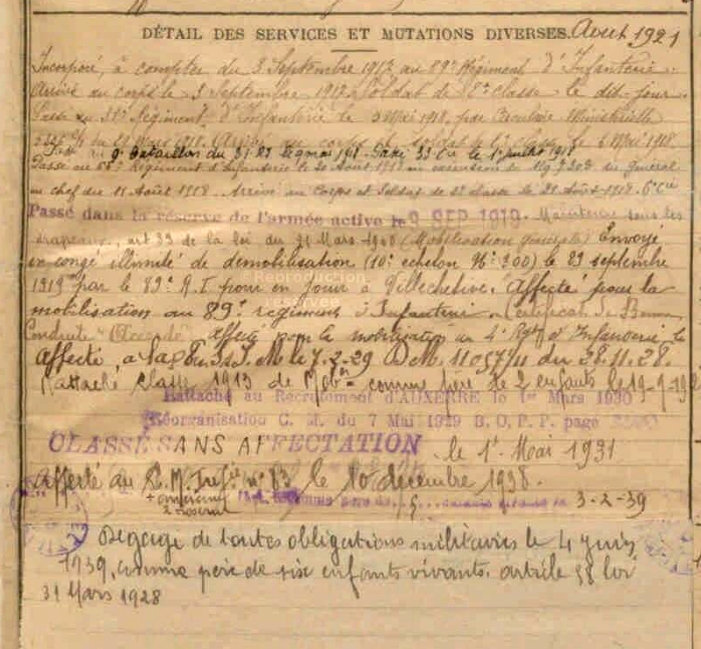 DÉTAIL DES SERVICES ET MUTATIONS DIVERSES. Aout 1921
Incorporé, à compter du 3 Septembre 1917 au 89e Régiment d'Infanterie.
Arrivé au corps le 3 Septembre 1917, Soldat de 2e classe le dit jour
Passé au 31e Régiment d'Infanterie le 5 Mai 1918, Circulaire Ministérielle
Mars 1918. Arrivé au corps et soldat de 2e classe le 6 Mai 1918
9e Bataillon du 31e le 9 mai 1918. Passé 33 Cie le 1er juillet 1918
Passé au Régiment d'Infanterie le 20 Août 1918 en exécution du général
en chef du 11 Août 1918. Arrivé au Corps et Soldat de 2e classe le 21 Août 1918.
Passé dans la réserve de l'armée active le 3 SEP 1919. Maintenu sous les
drapeaux, art 33 de la loi du 31 Mars 1905 (Mobilisation générale) Envoyé
en congé illimité de démobilisation (10e échelon N° 300) le 23 septembre
1919 par le 89e R.I. pour en Jour à Villechétive. Affecté pour la
mobilisation au 89e régiment d'Infanterie. Certificat de Bonne
Conduite "Accordé" affecté pour la mobilisation au 4e Rgt d'Infanterie le
affecté le 7.2.29 D.M. 11057/11 du 28.11.28.
Rattaché classe 1913 de Mobon comme père de 2 enfants le 19-9-192
Rattaché au Recrutement d'AUXERRE le 1er Mars 1930
Réorganisation C. M. du 7 Mai 1929 B. O. P. P. page
CLASSÉ SANS AFFECTATION le 1er Mai 1931
affecté au C. M. Inf.ie n° 83 le 10 décembre 1938.
5 3-2-39
Dégagé de toutes obligations militaires le 4 juin
1939, comme père de six enfants vivants. article 58 loi
31 Mars 1928
Reproduction
réservée